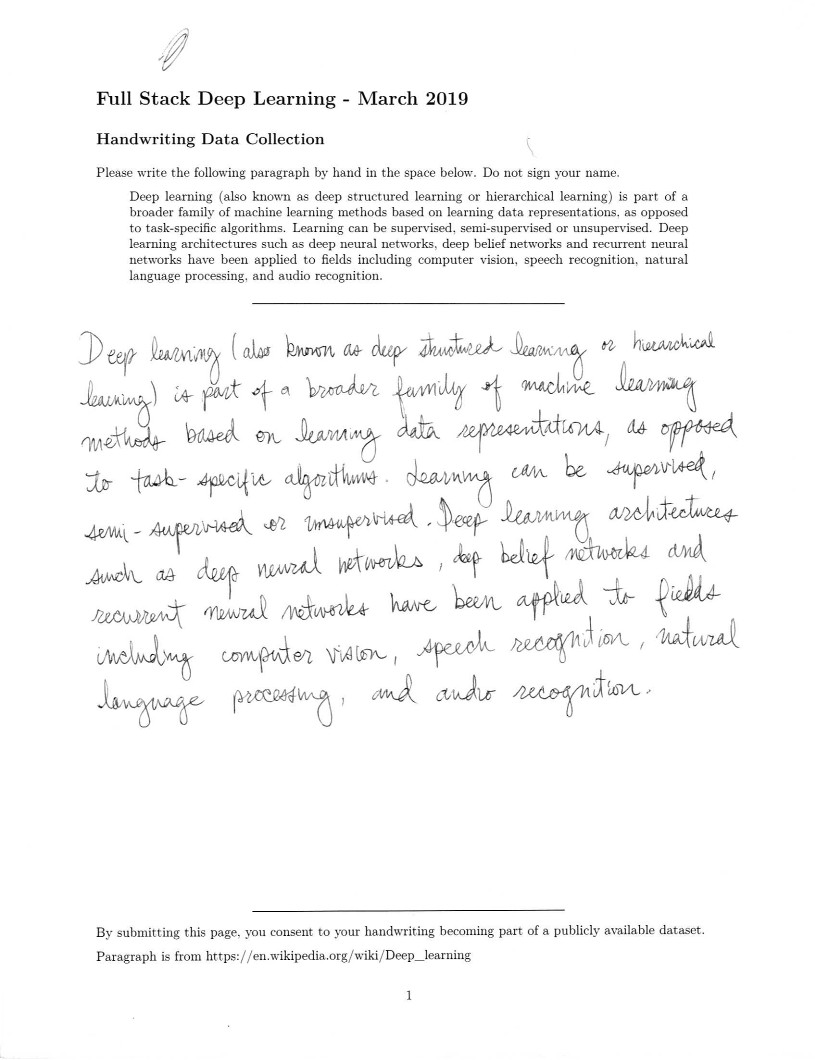 Full Stack Deep Learning - March 2019
Handwriting Data Collection
Please write the following paragraph by hand in the space below. Do not sign your name.
Deep learning (also known as deep structured learning or hierarchical learning) is part of a
broader family of machine learning methods based on learning data representations, as opposed
to task-specific algorithms. Learning can be supervised, semi-supervised or unsupervised. Deep
learning architectures such as deep neural networks, deep belief networks and recurrent neural
networks have been applied to fields including computer vision, speech recognition, natural
language processing, and audio recognition.
Deep learning (also known as deep structured learning or hierarchical
learning) is part of a broader family of machine learning
methods based on learning data representations, as opposed
to task-specific algorithms. Learning can be supervised,
semi-supervised or unsupervised. Deep learning architectures
such as deep neural networks, deep belief networks and
recurrent neural networks have been applied to fields
including computer vision, speech recognition, natural
language processing, and audio recognition.
By submitting this page, you consent to your handwriting becoming part of a publicly available dataset.
Paragraph is from https://en.wikipedia.org/wiki/Deep_learning
1